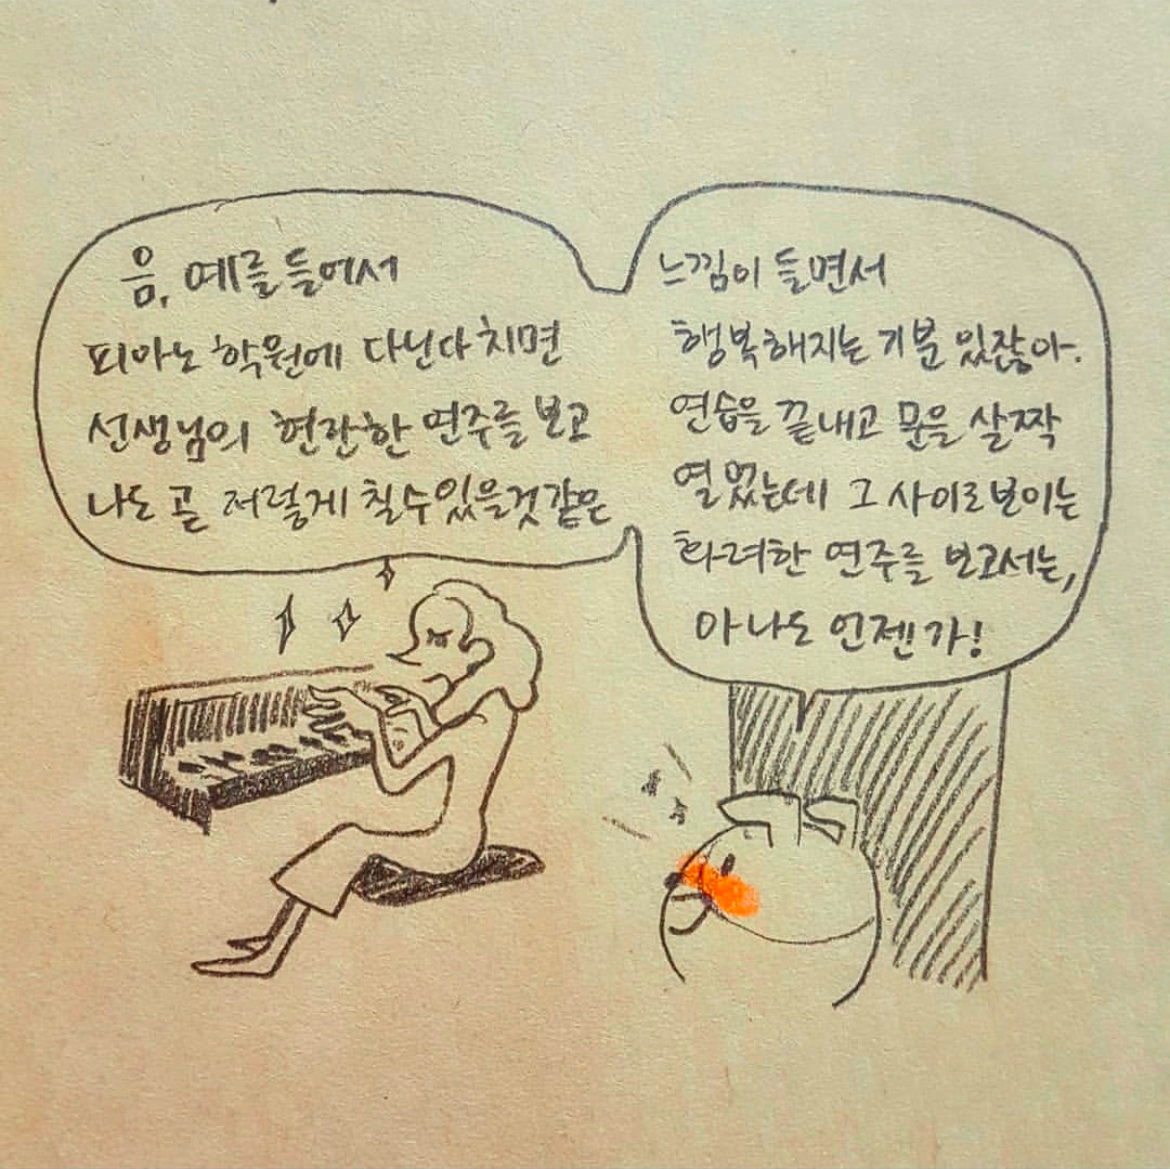 음, 예를 들어서
피아노 학원에 다닌다 치면
선생님의 현란한 연주를 보고
나도 곧 저렇게 칠수있을것 같은
느낌이 들면서
행복해지는 기분 있잖아.
연습을 끝내고 문을 살짝
열었는데 그 사이로 보이는
화려한 연주를 보고서는,
아 나도 언젠가!